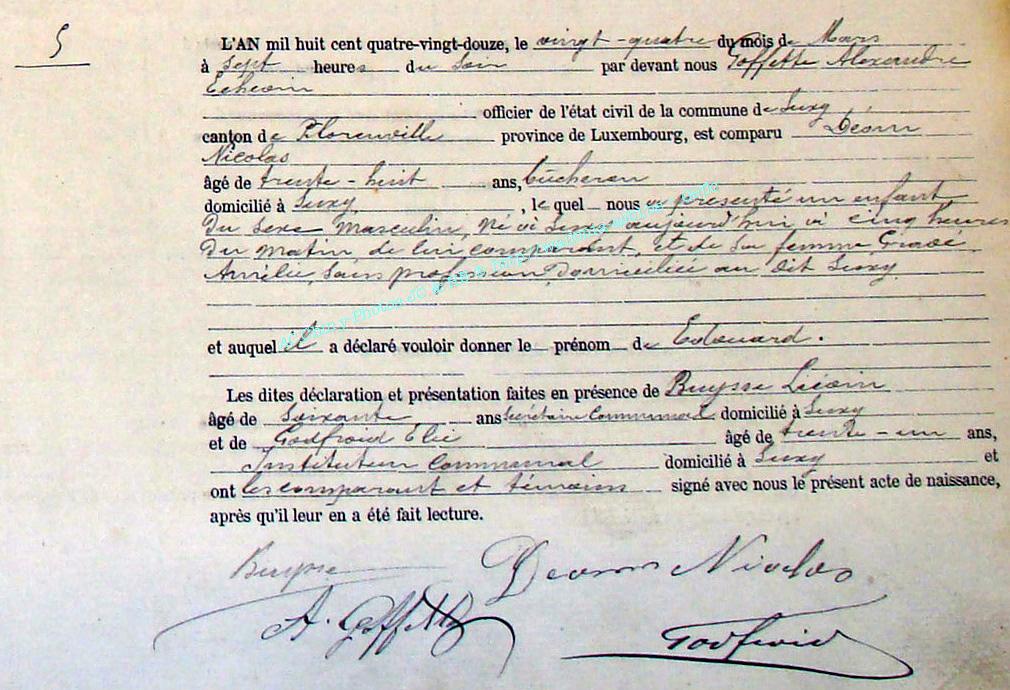 5
L'AN mil huit cent quatre-vingt-douze, le vingt-quatre du mois de Mars
à Sept heures du Soir par devant nous Goffette Alexandre
Echevin
officier de l'état civil de la commune de Suxy
canton de Florenville province de Luxembourg, est comparu Déom
Nicolas
âgé de trente-huit ans, bûcheron
domicilié à Suxy, lequel nous a présenté un enfant
du sexe masculin, né à Suxy aujourd'hui à cinq heures
du matin, de lui comparant, et de sa femme
Amélie, sans profession, domiciliée au dit Suxy
et auquel il a déclaré vouloir donner le prénom de Edouard.
Les dites déclaration et présentation faites en présence de Buysse
âgé de Soixante ans Secrétaire Communal domicilié à Suxy
et de Godfroid Elie âgé de trente-un ans,
Instituteur Communal domicilié à Suxy et
ont les comparant et témoins signé avec nous le présent acte de naissance,
après qu'il leur en a été fait lecture.
Buysse Deom Nicolas
A. Goffette Godfroid